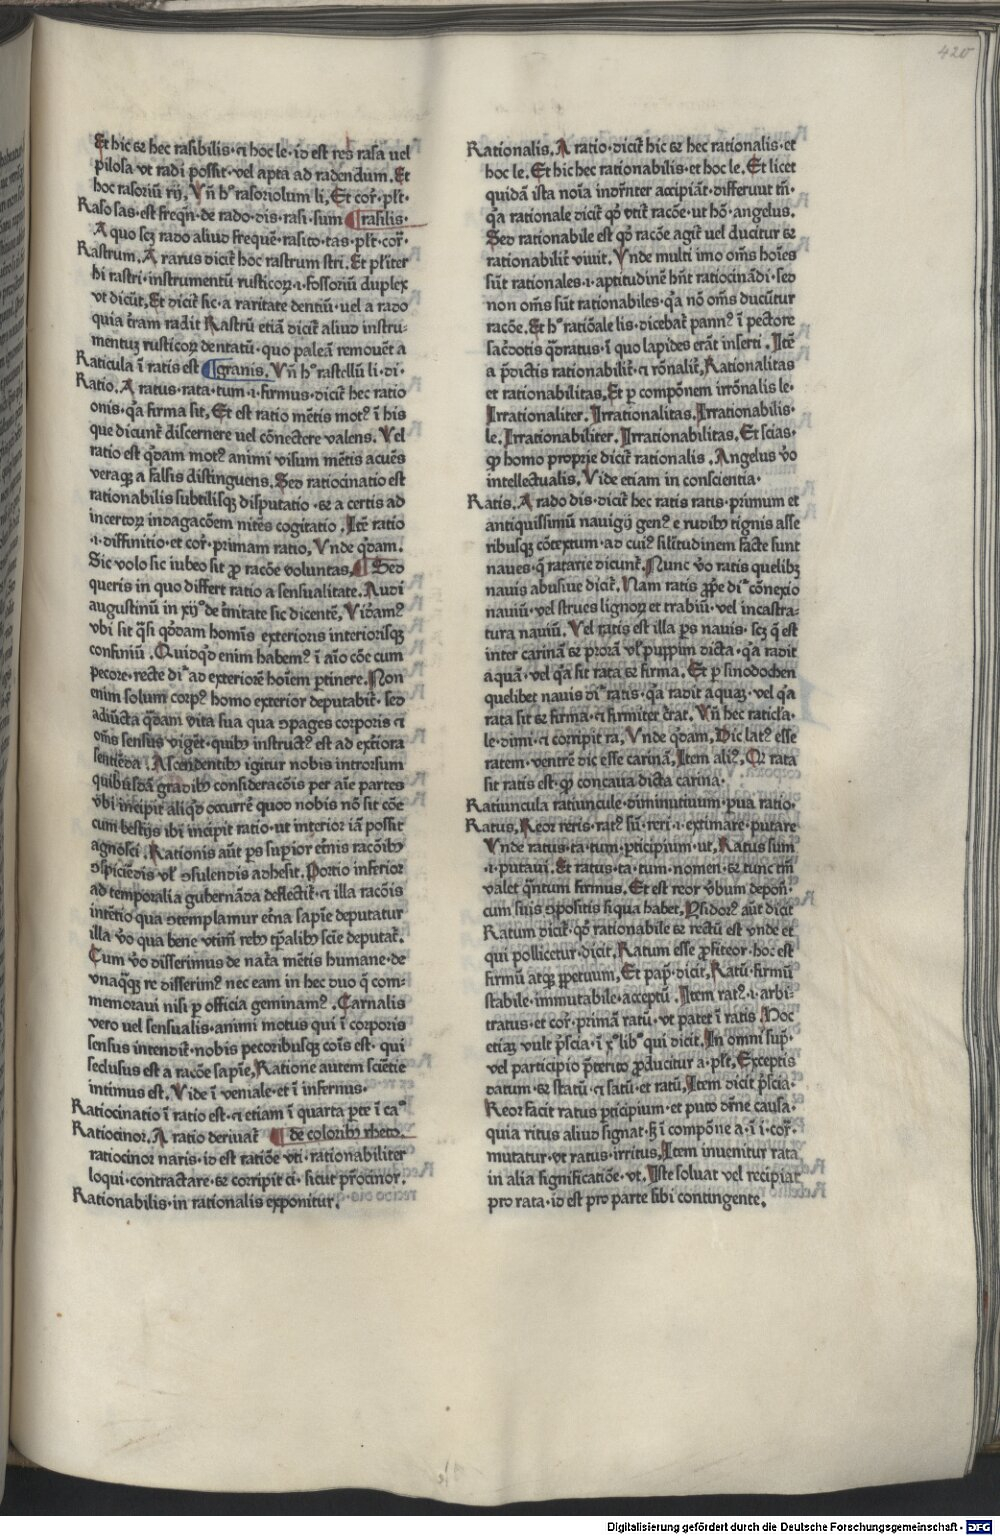 420
Et hic ⁊ hec rasibilis · ⁊ hoc le · id est res rasa uel
pilosa vt radi possit · vel apta ad radendum. Et
hoc rasoriū rij, Vn̄ hᵒ rasoriolum li, Et cor̄ · pl̄t ·
Raso sas · est freqn̄ · de rado · dis · rasi · sum ¶ rasilis ·
A quo scꝫ rado aliud frequē · rasito · tas · pl̄t · cor̄ ·
Rastrum. A rarus dicit̄ hoc rastrum stri. Et pl̄iter
hi rastri · instrumentū rusticoꝝ · i · fossoriū duplex
vt dicūt, Et dicit̄ sic · a raritate dentiū · uel a rado
quia t̄ram radit Rastrū etiā dicit̄ aliud instru-
mentuꝫ rusticoꝝ dentatū · quo paleā remouēt a
Raticula ī ratis est ¶ granis. Vn̄ hᵒ rastellū li · di ·
Ratio. A ratus · rata · tum · i · firmus · dicit̄ hec ratio
onis · qᷓa firma sit, Et est ratio mētis motꝰ ī his
que dicunt̄ discernere uel cōnectere valens. Vel
ratio est qᷓdam motꝰ animi visum mētis acuēs
veraqꝫ a falsis distinguens. Sed ratiocinatio est
rationabilis subtilisqꝫ disputatio · ⁊ a certis ad
incertoꝝ indagacōem nitēs cogitatio. Itē ratio
· i · diffinitio · et cor̄ · primam ratio, Vnde qᷓdam.
Sic volo sic iubeo sit ꝓ racōe voluntas, ¶ Sed
queris in quo differt ratio a sensualitate. Audi
augustinū in xijᵒ de t̄nitate sic dicentē, Videamꝰ
vbi sit qᷓsi qᵒddam homīs exterioris interiorisqꝫ
confiniū. Quidqᵒd enim habemꝰ ī aīo cōe cum
pecore · recte diᶜ ad exteriorē hoīem ꝑtinere. Non
enim solum corpꝰ homo exterior deputabit̄ · sed
adiūcta qᷓdam vita sua qua ꝯpages corporis ⁊
om̄s sensus viget̄ · quibꝫ instructꝰ est ad ext̄iora
sentiēda. Ascendentibꝫ igitur nobis introrsum
quibusdā gradibꝫ consideracōis per aīe partes
vbi incipit aliqᵒd occurrē quod nobis nō sit cōe
cum bestijs ibi incipit ratio · ut interior iā possit
agnosci. Rationis aūt ps supior et̄nis racōibꝫ
ꝯspiciēdis vl̓ ꝯsulendis adhesit. Portio inferior
ad temporalia gubernāda deflectit̄ · ⁊ illa racōis
intētio qua ꝯtemplamur et̄na sapīe deputatur
illa v̓o qua bene vtim̄ rebꝫ tp̄alibꝫ scīe deputat̄.
Cum v̓o disserimus de nat̓a mētis humane · de
vnaqᷓqꝫ re disserimꝰ nec eam in hec duo qᷓ com-
memoraui nisi ꝑ officia geminamꝰ. Carnalis
vero uel sensualis · animi motus qui ī corporis
sensus intendit̄ · nobis pecoribusqꝫ cōis est · qui
seclusus est a racōe sapīe, Ratione autem sciētie
intimus est. Vide ī veniale · et ī infernus.
Ratiocinatio ī ratio est · ⁊ etiam ī quarta ꝑte ī caᵒ
Ratiocinor. A ratio deriuat̄ ¶ de coloribꝫ rheto.
ratiocinor naris · id est ratiōe vti · rationabiliter
loqui · contractare · ⁊ corripit ci · sicut p̄ocinor.
Rationabilis · in rationalis exponitur.
Rationalis. A ratio · dicit̄ hic ⁊ hec rationalis · et
hoc le. Et hic hec rationabilis · et hoc le. Et licet
quidā ista noīa indr̄nter accipiāt · differūt tn̄ ·
qᷓa rationale dicit̄ qᵒd vtit̄ racōe · ut hō · angelus.
Sed rationabile est qᵒd racōe agit̄ uel ducitur ⁊
rationabilit̄ viuit. Vnde multi imo om̄s hoīes
sūt rationales · i · aptitudinē hn̄t ratiocināndi · sed
non om̄s sūt rationabiles · qᷓa nō om̄s ducūtur
racōe. Et hᵒ ratiōale lis · dicebat̄ pannꝰ ī pectore
sac̓dotis qᷓdratus · ī quo lapides erāt inserti. Itē
a p̄dictis rationabilit̄ · ⁊ rōnalit̄, Rationalitas
et rationabilitas, Et ꝑ componēm irrōnalis le ·
Irrationaliter. Irrationalitas. Irrationabilis ·
le. Irrationabiliter. Irrationabilitas. Et scias ·
ꝙ homo proprie dicit̄ rationalis. Angelus v̓o
intellectualis. Vide etiam in conscientia ·
Ratis. A rado dis · dicit̄ hec ratis ratis · primum et
antiquissimū nauigij genꝰ e rudibꝫ tignis asse
ribusqꝫ cōtextum · ad cuiꝰ sil̓itudinem facte sunt
naues · qᷓ ratarie dicunt̄. Nunc v̓o ratis quelibꝫ
nauis abusiue dicit̄. Nam ratis ꝓpe diᶜ cōnexio
nauiū · vel strues lignoꝝ et trabiū · vel incastra-
tura nauiū. Vel ratis est illa ps nauis · scꝫ qᷓ est
inter carinā ⁊ prorā vl̓ puppim dicta · qᷓa radit
aquā · vel qᷓa sit rata ⁊ firma. Et ꝑ sinodochen
quelibet nauis dīᶜ ratis · qᷓa radit aquaꝫ · vel qᷓa
rata sit ⁊ firma · ⁊ firmiter t̄rat. Vn̄ hec raticl̓a ·
le · dimi · ⁊ corripit ra, Vnde qᵒdam, Dic latꝰ esse
ratem · ventrē dic esse carinā, Item aliꝰ, Qz rata
sit ratis est · ꝙ concaua dicta carina ·
Ratiuncula ratiuncule · diminutiuum · pua ratio.
Ratus, Reor reris · ratꝰ sū · reri · i · extimare · putare
Vnde ratus · ta · tum · ꝑticipium · ut, Ratus sum
· i · putaui. Et ratus · ta · tum · nomen · ⁊ tunc tm̄
valet qᷓntum firmus. Et est reor v̓bum depon̄ ·
cum suis ꝯpositis siqua habet, Ysidorꝰ aūt dicit
Ratum dicit̄ · qᵒd rationabile ⁊ rectū est vnde et
qui pollicetur · dicit. Ratum esse ꝓfiteor · hoc est
firmū atqꝫ ꝑpetuum, Et pap̄ · dicit, Ratū · firmū
stabile · immutabile · acceptū. Item ratꝰ · i · arbi-
tratus · et cor̄ · primā ratū · vt patet ī ratis Hoc
etiaꝫ vult p̄scia · ī xᵒ libᵒ qui dicit. In omni sup̄ ·
vel participio p̄terito ꝓducitur a · pl̄t, Exceptis
datum · ⁊ statū · ⁊ satū · et ratū, Item dicit p̄scia ·
Reor facit ratus ꝑticipium · et puto dr̄ne causa ·
quia ritus aliud signat · sꝫ ī compōne a · ī i · cor̄ ·
mutatur · vt ratus · irritus, Item inuenitur rata
in alia significatiōe · vt. Iste soluat vel recipiat
pro rata · id est pro parte sibi contingente.
Digitalisierung gefördert durch die Deutsche Forschungsgemeinschaft · DFG